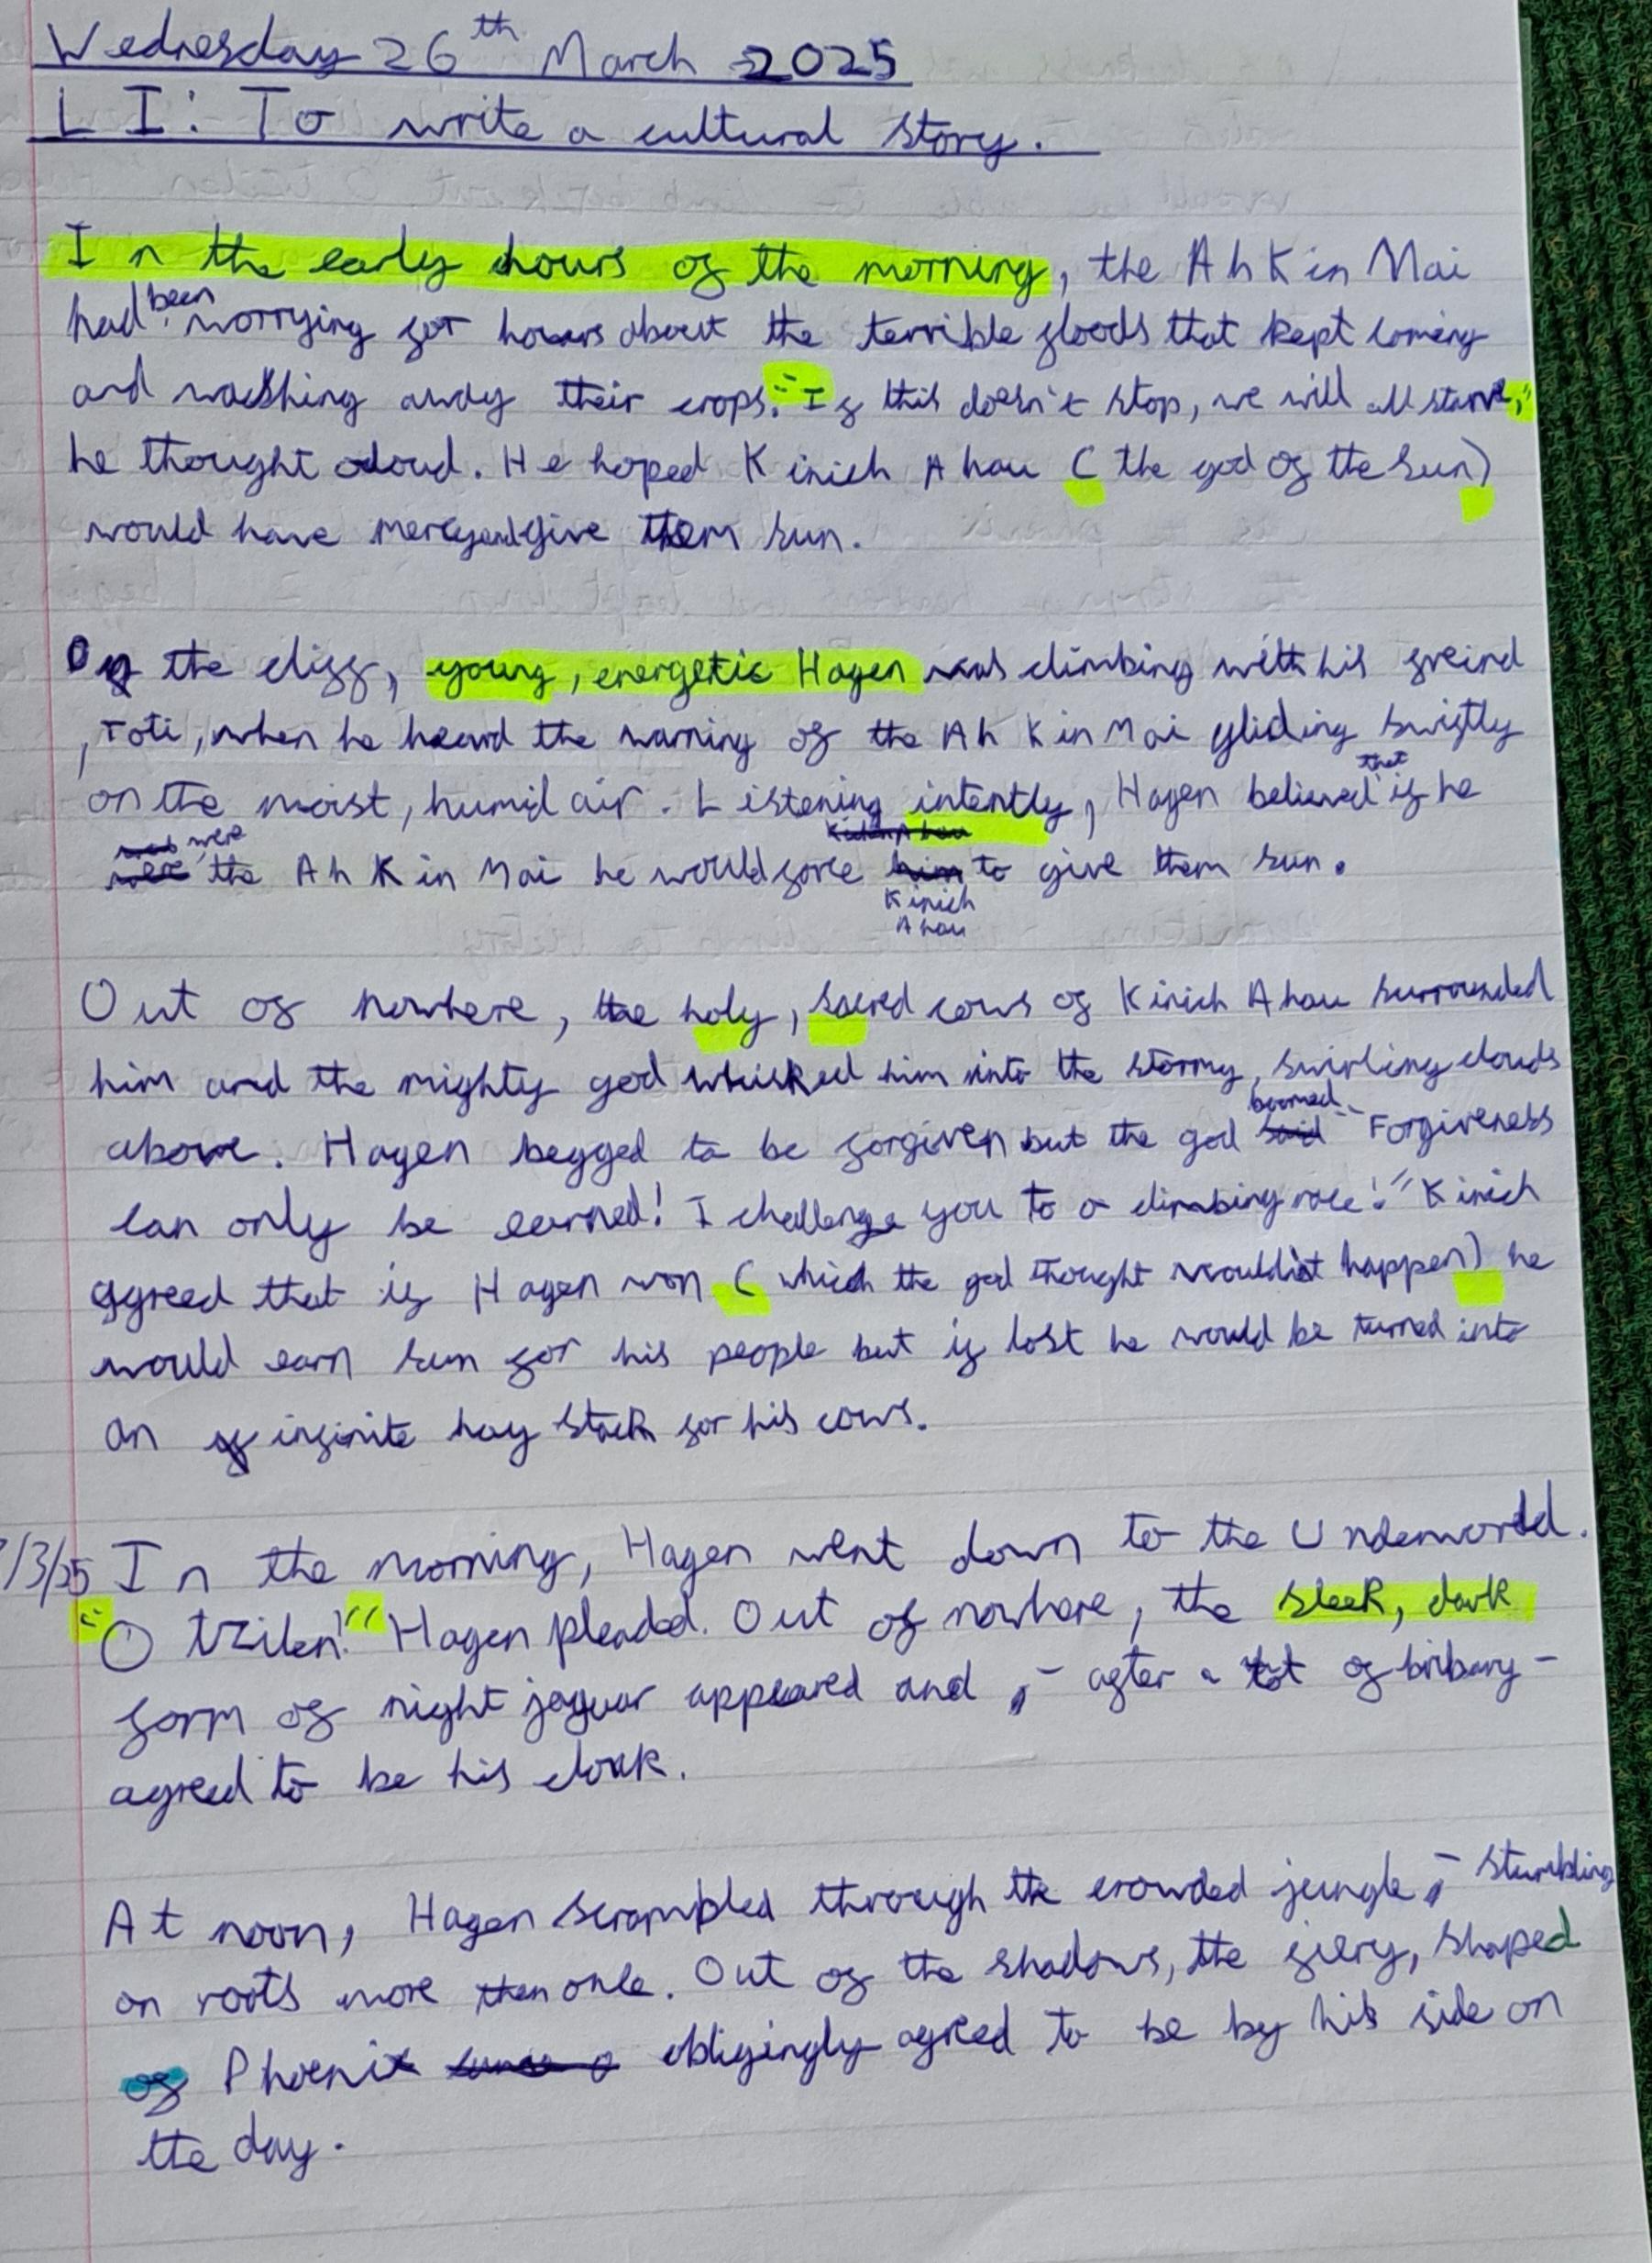 Wednesday 26th March 2025
LI: To write a cultural story.
In the early hours of the morning, the Ah Kin Mai
had been worrying for hours about the terrible floods that kept coming
and washing away their crops. "If this doesn't stop, we will all starve,"
he thought aloud. He hoped Kinich Ahau (the god of the sun)
would have mercy and give them sun.
On the cliff, young, energetic Hagen was climbing with his freind
, Toti, when he heard the warning of the Ah Kin Mai gliding swiftly
on the moist, humid air. Listening intently, Hagen believed that if he
were the Ah Kin Mai he would force Kinich Ahau to give them sun.
Out of nowhere, the holy, sacred cows of Kinich Ahau surrounded
him and the mighty god whisked him into the stormy, swirling clouds
above. Hagen begged to be forgiven but the god boomed "Forgiveness
can only be earned! I challenge you to a climbing race!" Kinich
agreed that if Hagen won (which the god thought wouldn't happen) he
would earn sun for his people but if lost he would be turned into
an infinite hay stack for his cows.
/3/25 In the morning, Hagen went down to the Underworld.
"O tzilen!" Hagen pleaded. Out of nowhere, the sleek, dark
form of night jaguar appeared and - after a lot of bribary -
agreed to be his cloak.
At noon, Hagen scrampled through the crowded jungle, - stumbling
on roots more than once. Out of the shadows, the fiery, shaped
of Phoenix obligingly agreed to be by his side on
the day.